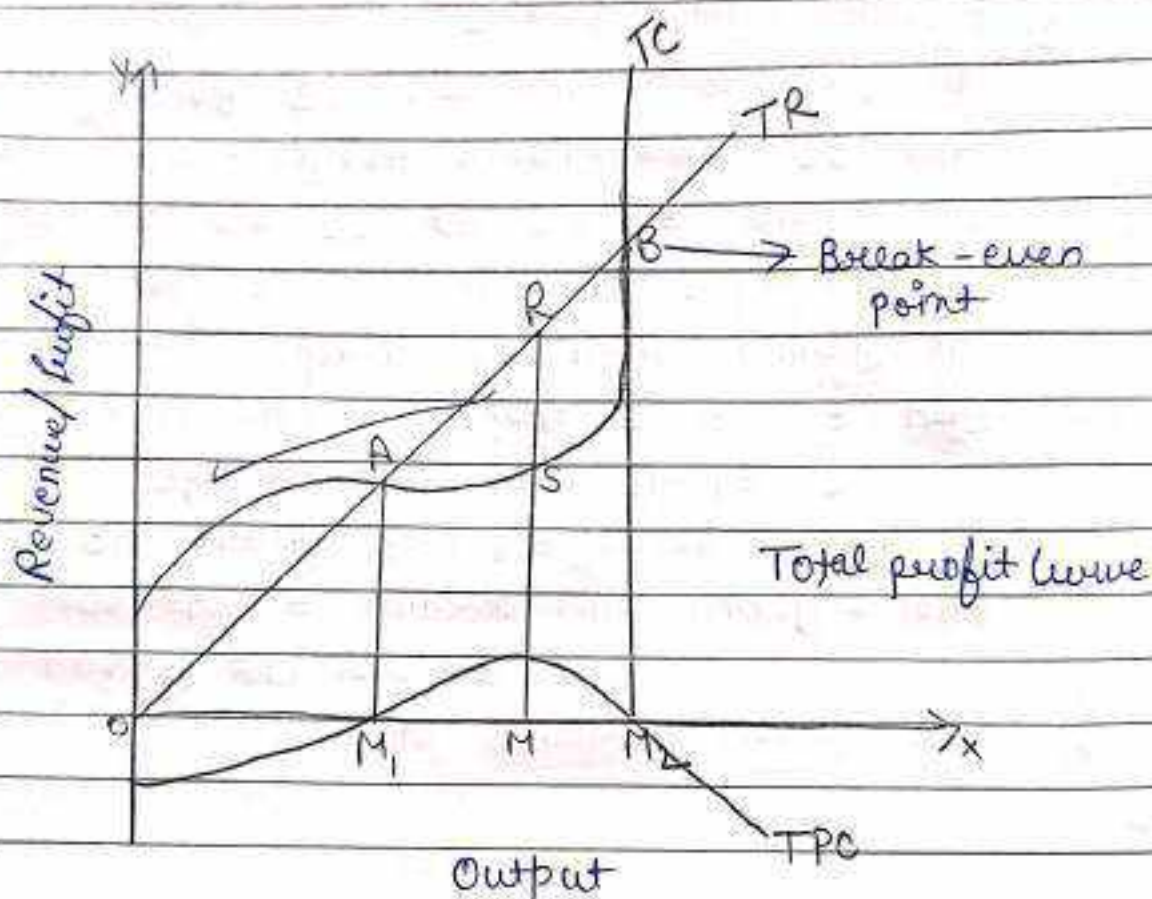 TC
Y
TR
B
Break-even
point
R
Revenue/Profit
A
S
Total profit curve
O
M1
M
M2
X
TPC
Output